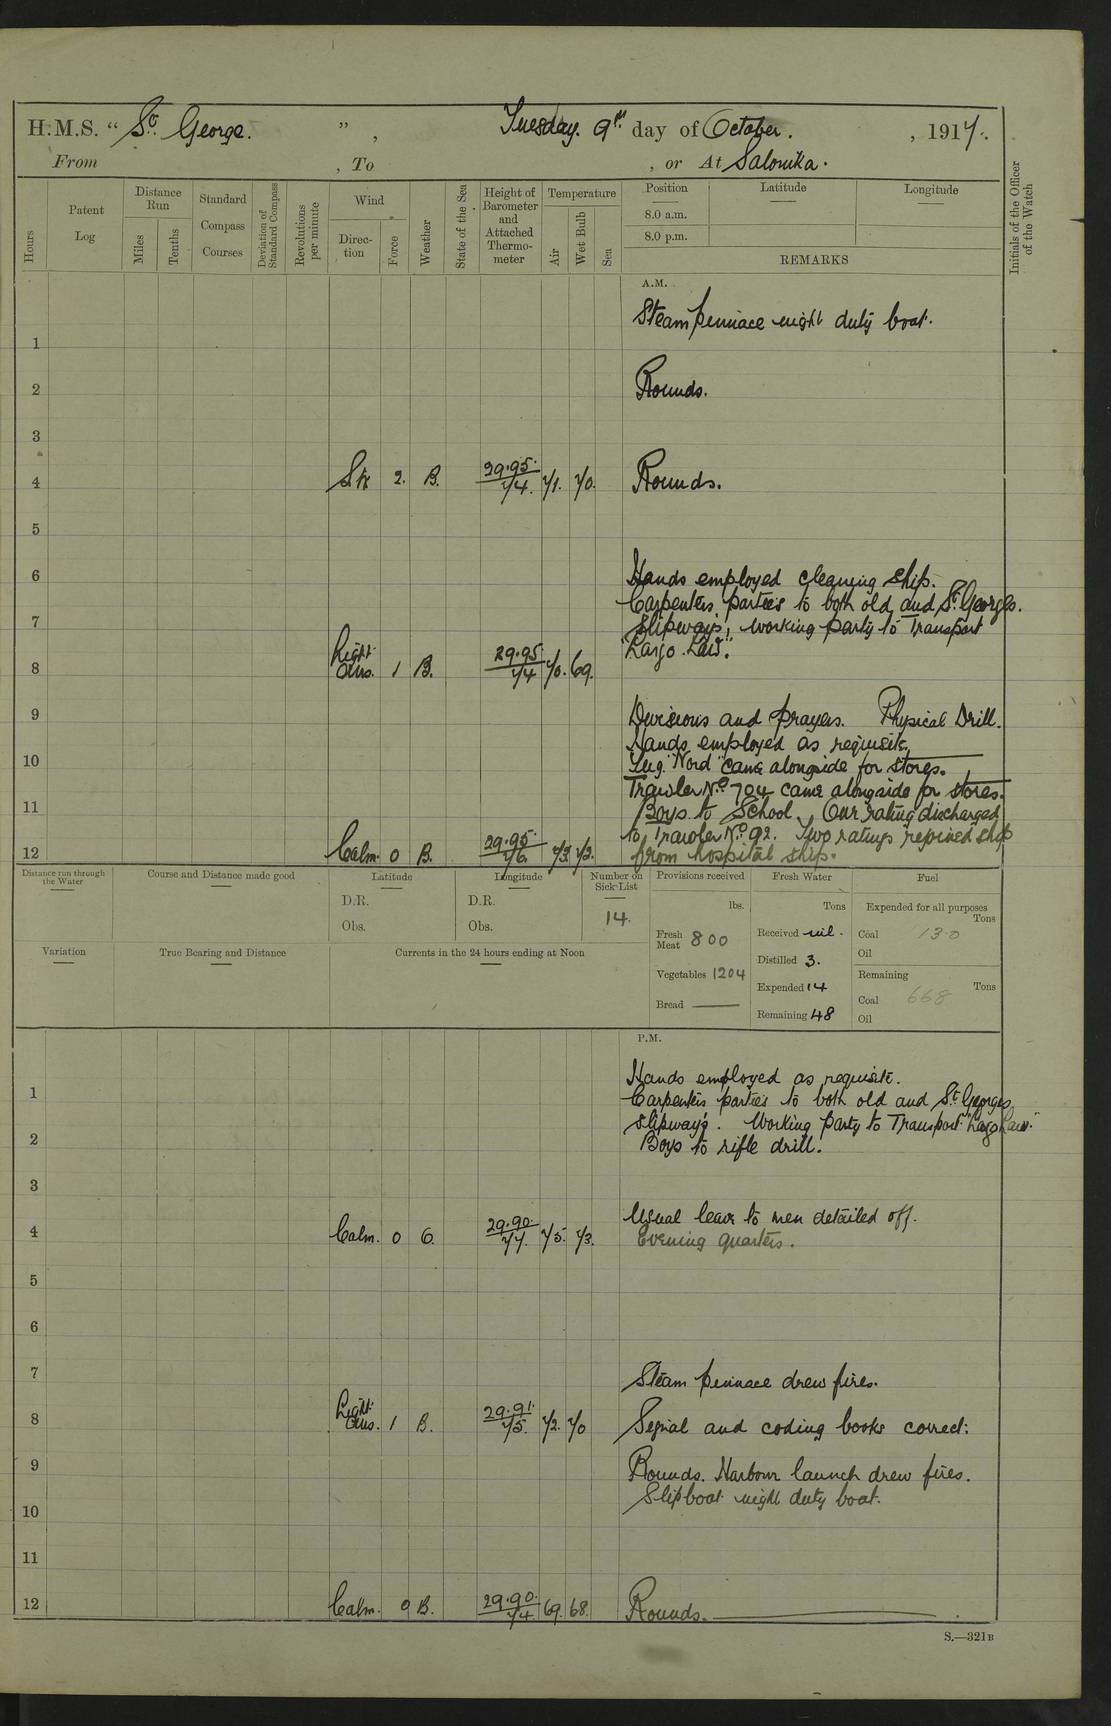 H.M.S. " St. George. " , Tuesday. 9th day of October. , 1917.
From , To , or At Salonika.
Hours
Patent Log
Distance Run
Miles
Tenths
Standard Compass Courses
Deviation of Standard Compass
Revolutions per minute
Wind
Direction
Force
Weather
State of the Sea
Height of Barometer and Attached Thermometer
Temperature
Air
Wet Bulb
Sea
Position
8.0 a.m.
8.0 p.m.
Latitude
Longitude
REMARKS
Initials of the Officer of the Watch
A.M.
Steam pinnace night duty boat.
1
2 Rounds.
3
4 2. B. 29.95. 74. 71. 70. Rounds.
5
6 Hands employed cleaning ship.
Carpenters parties to both old and St Georges.
7 slipways, working party to Transport
"Largo Law".
8 Light airs. 1 B. 29.95. 74 70. 69.
9 Divisions and prayers. Physical Drill.
Hands employed as requisite.
10 Tug "Nord" came alongside for stores.
Trawler No 704 came alongside for stores.
11 Boys to School. One rating discharged
to Trawler No 92. Two ratings rejoined ship
12 Calm. 0 B. 29.95. 76. 73. 73. from hospital ship.
Distance run through the Water
Course and Distance made good
Latitude
D.R.
Obs.
Longitude
D.R.
Obs.
Number on Sick List
14.
Provisions received
lbs.
Fresh Meat 800
Vegetables 1204
Bread ——
Fresh Water
Tons
Received nil.
Distilled 3.
Expended 14
Remaining 48
Fuel
Expended for all purposes
Tons
Coal 13.0
Oil
Remaining
Tons
Coal 668
Oil
Variation
True Bearing and Distance
Currents in the 24 hours ending at Noon
P.M.
Hands employed as requisite.
1 Carpenters parties to both old and St Georges
slipways. Working party to Transport "Largo Law."
2 Boys to rifle drill.
3
Usual leave to men detailed off.
4 Calm. 0 29.90. 77. 75. 73. Evening quarters.
5
6
7 Steam pinnace drew fires.
8 Light airs. 1 B. 29.91. 75. 72. 70 Signal and coding books correct:
9 Rounds. Harbour launch drew fires.
Slipboat night duty boat.
10
11
12 Calm. 0 B. 29.90. 74 69. 68. Rounds.
S.—321B